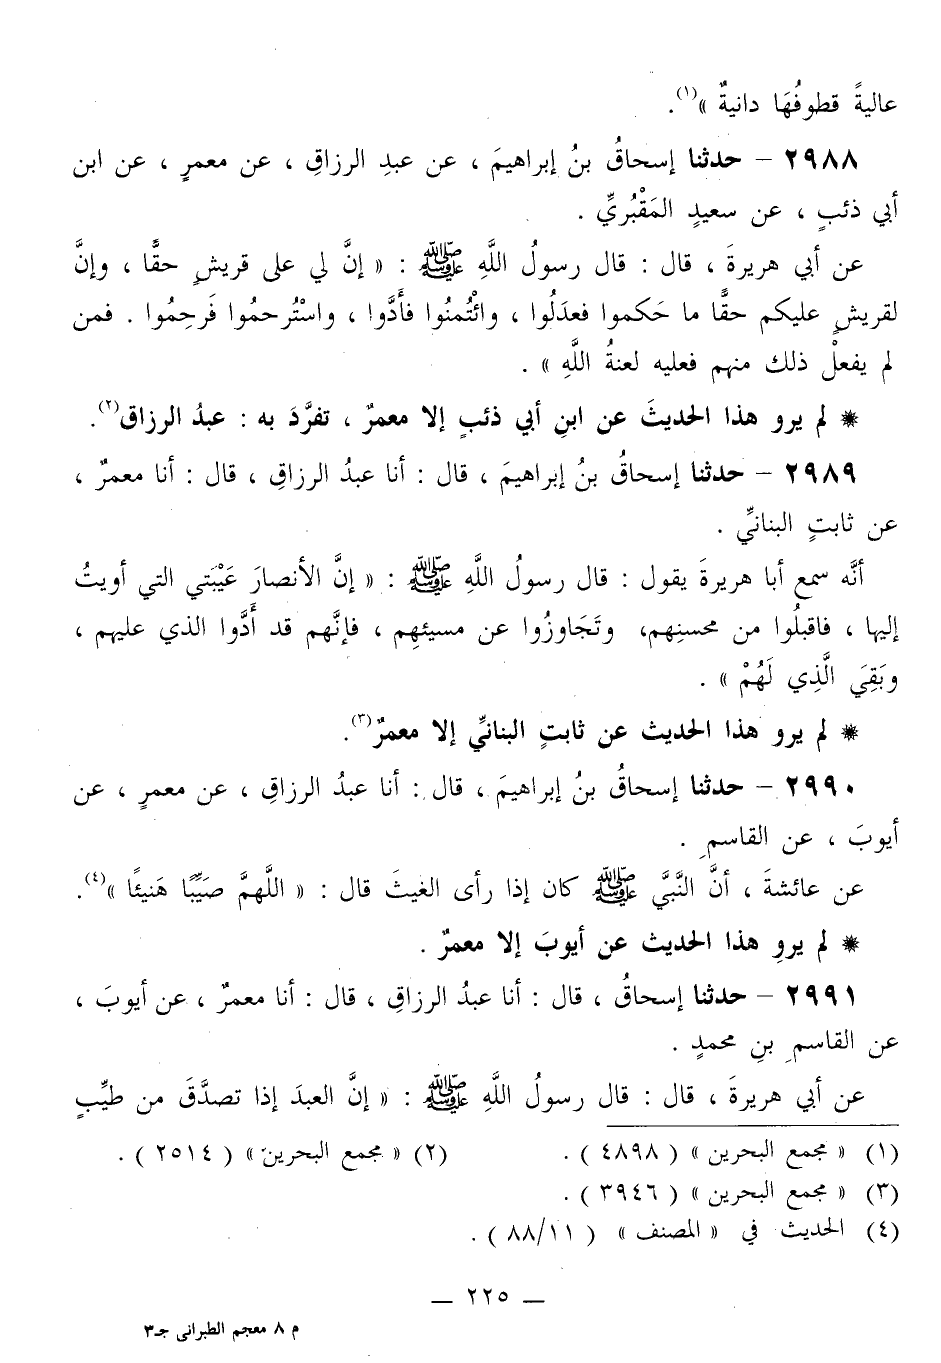 عاليةً قطوفُهَا دانيةٌ »(١).
٢٩٨٨ – حدثنا إسحاقُ بنُ إبراهيمَ ، عن عبدِ الرزاقِ ، عن معمرٍ ، عن ابن
أبي ذئبٍ ، عن سعيدٍ المَقْبُريِّ .
عن أبي هريرةَ ، قال : قال رسولُ اللَّهِ ﷺ : « إنَّ لي على قريشٍ حقًّا ، وإنَّ
لقريشٍ عليكم حقًّا ما حَكموا فعدَلُوا ، وائْتُمنُوا فأَدَّوا ، واسْتُرحمُوا فَرحِمُوا . فمن
لم يفعلْ ذلك منهم فعليه لعنةُ اللَّهِ » .
* لم يرو هذا الحديثَ عن ابنِ أبي ذئبٍ إلا معمرٌ ، تفرَّدَ به : عبدُ الرزاق(٢).
٢٩٨٩ – حدثنا إسحاقُ بنُ إبراهيمَ ، قال : أنا عبدُ الرزاقِ ، قال : أنا معمرٌ ،
عن ثابتٍ البنانيِّ .
أنَّه سمع أبا هريرةَ يقول : قال رسولُ اللَّهِ ﷺ : « إنَّ الأنصارَ عَيْبَتي التي أويتُ
إليها ، فاقبلُوا من محسنِهم، وتَجَاوزُوا عن مسيئهِم ، فإنَّهم قد أَدَّوا الذي عليهم ،
وبَقِيَ الَّذِي لَهُمْ » .
* لم يرو هذا الحديث عن ثابتٍ البنانيِّ إلا معمرٌ(٣).
٢٩٩٠ – حدثنا إسحاقُ بنُ إبراهيمَ ، قال : أنا عبدُ الرزاقِ ، عن معمرٍ ، عن
أيوبَ ، عن القاسمِ .
عن عائشةَ ، أنَّ النَّبيَّ ﷺ كان إذا رأى الغيثَ قال : « اللَّهمَّ صَيِّبًا هَنيئًا »(٤).
* لم يروِ هذا الحديث عن أيوبَ إلا معمرٌ .
٢٩٩١ – حدثنا إسحاقُ ، قال : أنا عبدُ الرزاقِ ، قال : أنا معمرٌ ، عن أيوبَ ،
عن القاسمِ بنِ محمدٍ .
عن أبي هريرةَ ، قال : قال رسولُ اللَّهِ ﷺ : « إنَّ العبدَ إذا تصدَّقَ من طيِّبٍ
(١) « مجمع البحرين » ( ٤٨٩٨ ) . (٢) « مجمع البحرين » ( ٢٥١٤ ) .
(٣) « مجمع البحرين » ( ٣٩٤٦ ) .
(٤) الحديث في « المصنف » ( ٨٨/١١ ) .
— ٢٢٥ —
م ٨ معجم الطبرانى جـ٣